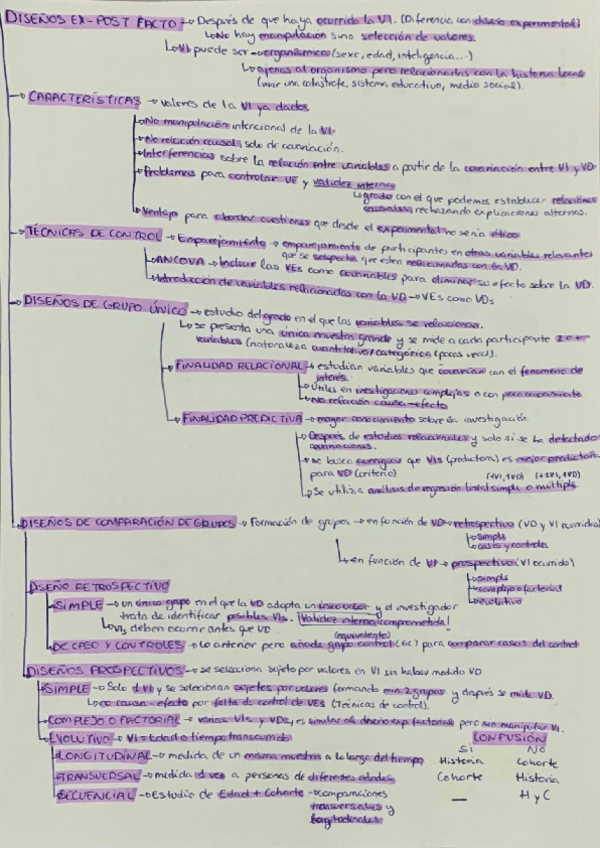 DISEÑOS EX-POST FACTO → Después de que haya ocurrido la VI. (Diferencia con diseño experimental)
↳ No hay manipulación sino selección de valores.
↳ VI puede ser → organísmica (sexo, edad, inteligencia...)
↳ ajenas al organismo pero relacionadas con la historia
(vivir una catástrofe, sistema educativo, medio social).
→ CARACTERÍSTICAS → valores de la VI ya dados
↳ No manipulación intencional de la VI.
↳ No relación causal, solo de covariación.
↳ Interferencias sobre la relación entre variables a partir de la covariación entre VI y VD
↳ Problemas para controlar VE y validez interna
↳ grado con el que podemos establecer relaciones
causales, rechazando explicaciones alternas.
↳ Ventaja para abordar cuestiones que desde el experimental no sería ético
→ TÉCNICAS DE CONTROL → Emparejamiento → emparejamiento de participantes en otras variables relevantes
que se sospecha que esten relacionadas con la VD.
↳ ANCOVA → Incluir las VEs como covariables para eliminar su efecto sobre la VD.
↳ Introducción de variables relacionadas con la VD → VEs como VDs
→ DISEÑOS DE GRUPO ÚNICO → estudio del grado en el que las variables se relacionan.
↳ se presenta una única muestra grande y se mide a cada participante 2 o +
variables (naturaleza cuantitativa/categórica (pocas veces).
→ FINALIDAD RELACIONAL → estudian variables que covarían con el fenómeno de
interés.
↳ Útiles en investigaciones complejas o con poco conocimiento
↳ No relación causa-efecto
→ FINALIDAD PREDICTIVA → mayor conocimiento sobre la investigación.
↳ Después de estudios relacionales y solo si se ha detectado
covariaciones.
↳ se busca averiguar que VIs (predictora) es mejor predictora
para VD (criterio). (1VI, 1VD) (+1VI, 1VD)
↳ Se utiliza análisis de regresión lineal simple o múltiple.
→ DISEÑOS DE COMPARACIÓN DE GRUPOS → Formación de grupos → en función de VD → retrospectivo (VD y VI ocurrido)
↳ simple
↳ casos y controles
↳ en función de VI → prospectivo (VI ocurrido)
↳ simple
↳ complejo o factorial
↳ evolutivo
DISEÑO RETROSPECTIVO
SIMPLE → un único grupo en el que la VD adopta un único valor y el investigador
trata de identificar posibles VIs. ¡Validez interna comprometida!
↳ VIs deben ocurrir antes que VD (equivalente)
DE CASO Y CONTROLES → Lo anterior pero añade grupo control (GC) para comparar casos del control
DISEÑOS PROSPECTIVOS → se selecciona sujeto por valores en VI sin haber medido VD
SIMPLE → Solo 1 VI y se selecionan sujetos por valores formando min 2 grupos y después se mide VD.
↳ no causa-efecto por falta de control de VEs (Técnicas de control).
COMPLEJO O FACTORIAL → varias VIs y VDs, es similar al diseño exp factorial pero sin manipular VI.
EVOLUTIVO → VI = Edad o tiempo transcurrido CONFUSIÓN
SI NO
LONGITUDINAL → medida de un misma muestra a lo largo del tiempo Historia Cohorte
TRANSVERSAL → medida 1 vez a personas de diferentes edades Cohorte Historia
SECUENCIAL → Estudio de Edad + Cohorte → comparaciones — H y C
transversales y
longitudinales